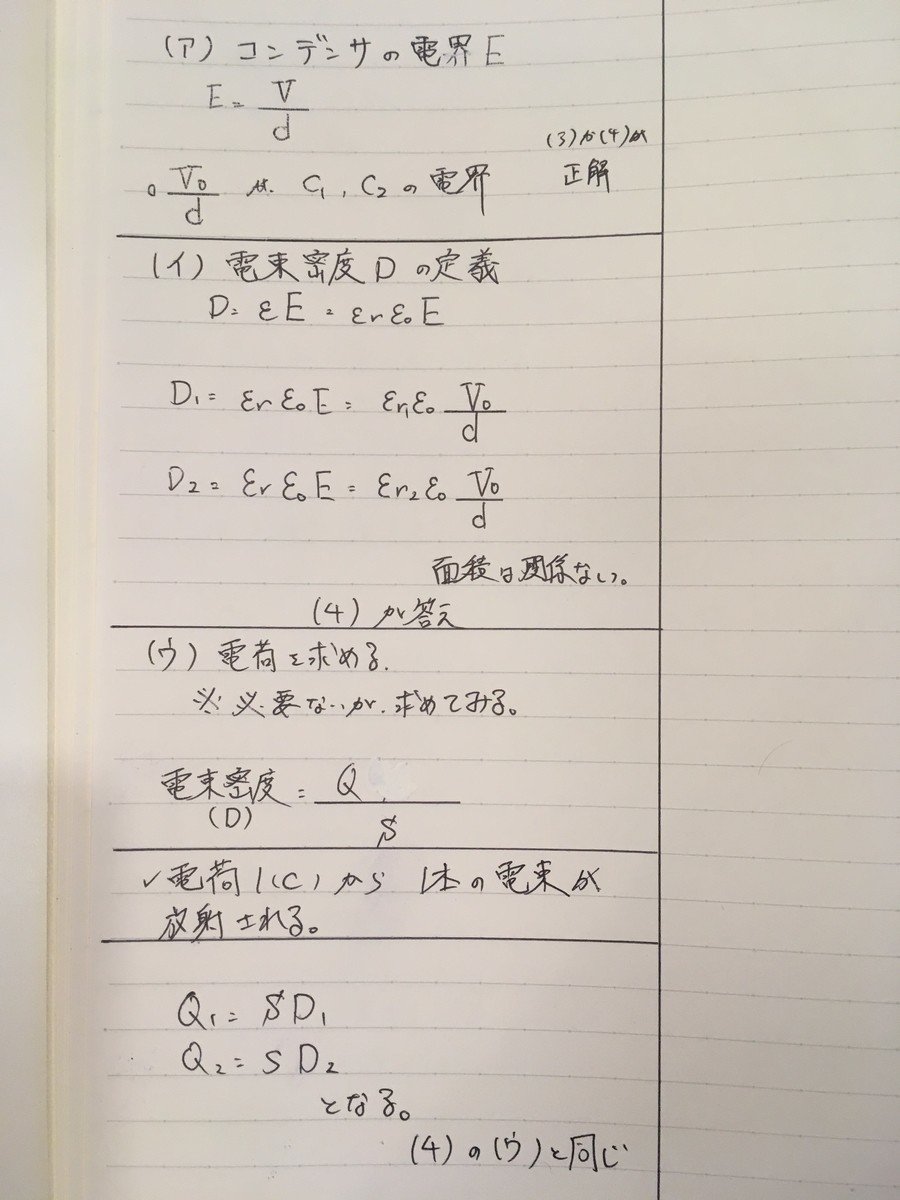 (ア) コンデンサの電界 E
E = V/d
(3)か(4)が
正解
○ V₀/d が. C₁, C₂ の電界
(イ) 電束密度 D の定義
D = εE = εrε₀E
D₁ = εrε₀E = εr₁ε₀ V₀/d
D₂ = εrε₀E = εr₂ε₀ V₀/d
面積は関係ない。
(4) が答え
(ウ) 電荷を求める.
※ 必要ないが. 求めてみる。
電束密度 = Q/S
(D)
✓ 電荷 1(C) から 1本の電束が
放射される。
Q₁ = SD₁
Q₂ = SD₂
となる。
(4) の (ウ) と同じ